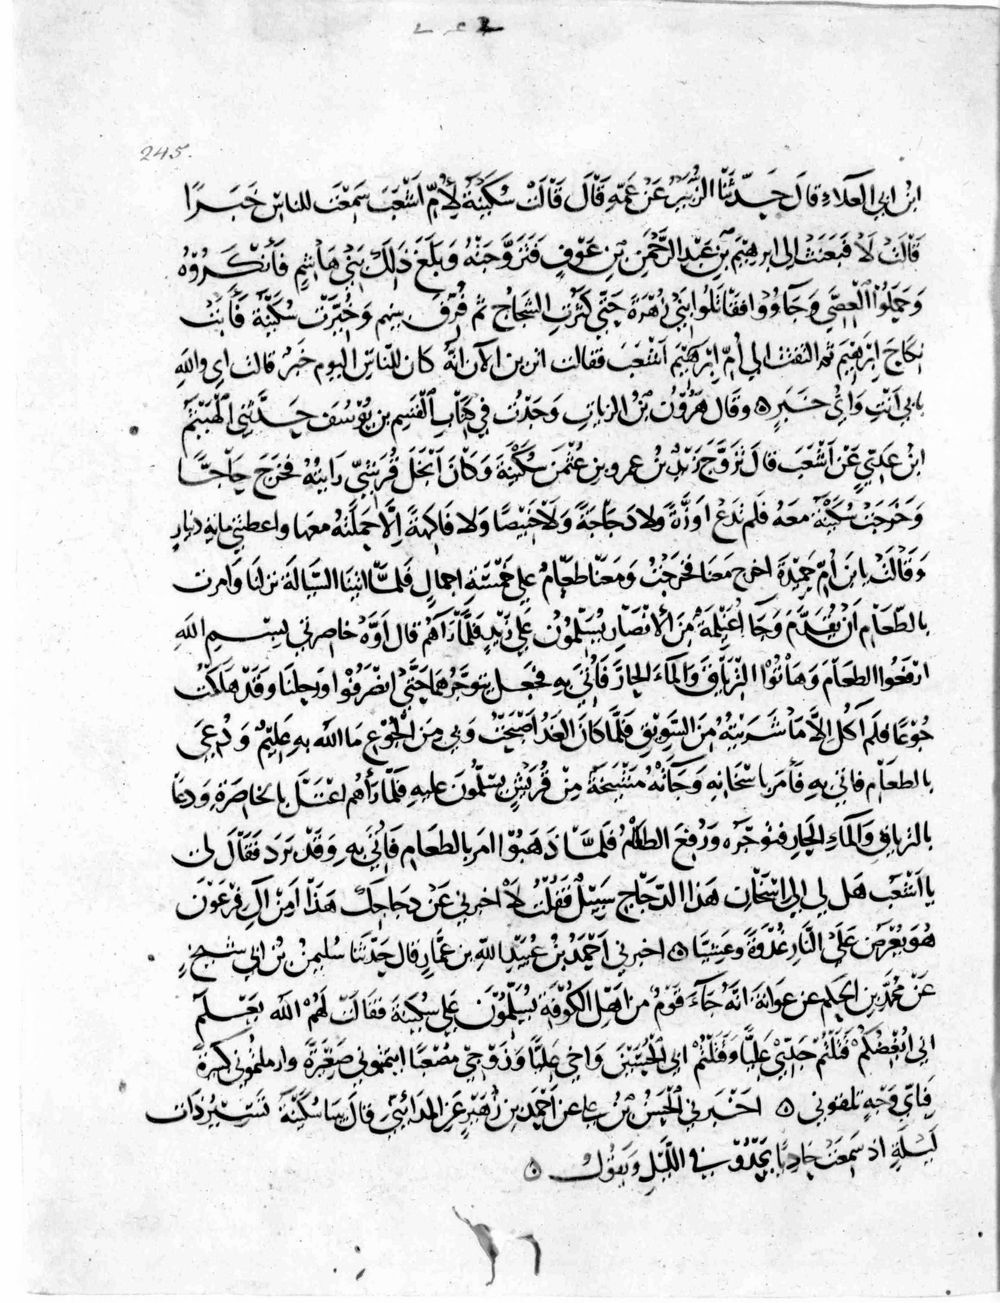 245.
ابن ابى العلاء قال حَدّثنا الزُّبَيْر عَنْ عَمّهِ قَالَ قَالَتْ سُكَيْنَة لِأُمِّ اَشْعَبَ سَمِعْتِ للناسِ خَبَرًا
قَالَتْ لَا فَبَعَثَتْ الى ابرهيْمَ بن عَبْدِ الرَّحْمنِ بْنِ عَوْفٍ فَتَزَوَّجَتْهُ وَبَلَغَ ذَلِكَ بَنِيْ هَاشِمٍ فَأَنْكَرُوْهُ
وَحَمَلُوْا الْعِصِيَّ وَجَاءُوْا فَقَاتَلُوا بَنِيْ زُهْرَةَ حَتَّى كَثُرَتِ الشِّجَاجُ ثم فُرِّقَ بينهم وَخُيِّرَتْ سُكَيْنَةُ فَأَبَتْ
نكاحَ اِبْرَاهِيْمَ ثم التفتت الى أُمِّ اَشْعَبَ فقالت اترين الآن انّهُ كان للنَّاسِ اليوم خبرٌ قالت اى واللهِ
بابى اَنْتِ وَاىُّ خَبَرٍ ۞ وقال هَرُوْنُ بْنُ الزيات وَجَدْتُ في كِتَابِ الْقَسِمِ بن يُوْسُفَ حَدَّثَنِي الْهَيْثَمُ
ابْنُ عَدِيٍّ عَنْ اَشْعَبَ قالَ تَزَوَّجَ زَيْدُ بْنُ عمرو بن عُثْمنَ سُكَيْنَةَ وَكَانَ اَبْخَلَ قُرَشِيٍّ رَايتُهُ فخرَجَ حَاجًّا
وَخَرَجَتْ سُكَيْنَةُ معَهُ فلم تَدَعْ اوَزَّةً ولا دَجَاجَةً وَلَا خَبِيْصًا وَلا فاكِهَةً اِلَّا حَمَلَتْهُ معها واعطتني مايةِ دينارٍ
وَقَالَتْ يا بْنَ اُمِّ حَمِيْدَةَ اخرج مَعنا فخرَجْتُ وَمَعَنَا طَعَامٌ على خَمْسَةِ اجمالٍ فلمَّا اتينَا السَّيَالَةَ نزلنا وَامرت
بالطّعَام اَنْ يُقَدَّمَ وَجَا اُغَيْلِمَةٌ مِنَ الأنصَارِ يُسَلِّمُوْنَ على زَيْدٍ فَلَمَّا رَآهُمْ قال اَوَّهْ خاصرتي بِسْمِ اللهِ
ارْفَعُوا الطعَامَ وَهَاتُوْا التِّرْيَاقَ وَالمَاءَ الحَارَّ فَأُتِيَ بهِ فجَعَل يتوجَّرُهَا حَتَّى انْصَرَفُوْا ورحلنَا وَقَدْ هَلَكْتُ
جُوْعًا فلم اَكُلْ الاَّ مَا اشْتَرَيْتُهُ مِنَ السَّوِيْقِ فَلَمَّا كانَ الغَدُ اَصْبَحْتُ وَبي مِنَ الْجُوْعِ مَا اللهُ بهِ عَلِيْمٌ وَدُعِيَ
بالطعَامِ فاتي بهِ فَأَمَرَ باسْخَانِهِ وَجَاَتْهُ مَشْيَخَةٌ مِنْ قُرَيْشٍ يُسَلِّمُونَ عليهِ فَلمّا رَأهُم اعْتَلَّ بالخاصَرَةِ وَدعَا
بالتِرياقِ وَالْمَاءِ الحَارِ فتوجّرَه وَرُفِعَ الطعَامُ فَلمَّا ذَهَبُوْا امَرَ بالطعَامِ فَأُتِيَ بهِ وَقَدْ بَرَدَ فَقَالَ لي
يا اَشْعَب هَل لي الى اسْخَانِ هَذا الدّجَاجِ سَبِيْلٌ فَقُلْتُ لَهُ اخبرني عَنْ دجَاجِكَ هَذَا اَمِنْ آلِ فِرْعَوْنَ
هُوَ يُعْرَضُ عَلَى النَّارِ غُدُوَّةً وعَشِيًّا ۞ اخبرني اَحْمَدُ بْنُ عُبَيْدِ اللهِ بن عَمَّارٍ قال حَدَّثَنَا سُليمنُ بْنُ ابى شيْخٍ
عَنْ مُحَمَّدِ بنِ الحكم عن عوانة انَّهُ جَآءَ قَوْمٌ من اَهْلِ الكُوْفَةِ يُسَلِّمُوْنَ عَلى سُكينَةَ فقالَتْ لَهُمْ الله يعْلَمُ
انى اُبْغِضُكُمْ قَتَلْتُمْ جَدِّيْ عَلِيًّا وَقَتَلْتُمْ ابى الْحُسَيْنَ وَاخي عَلِيًّا وَزَوْجِيْ مُصْعَبًا ايتمتموني صَغِيْرَةً وارملتموني كبيرةً
فَبِاَيّ وَجْهٍ تلقوني ۞ اخبَرني الْحَسَنُ بْنُ علي عن اَحْمَدَ بن زُهَيْرٍ عَنِ المدائنيِّ قالَ بينا سُكَيْنَةُ تَسِيْرُ ذَات
لَيْلَةٍ اذ سَمِعَتْ حَاديًا يَحْدُوْ في اللَّيْلِ وَيقولُ ۞